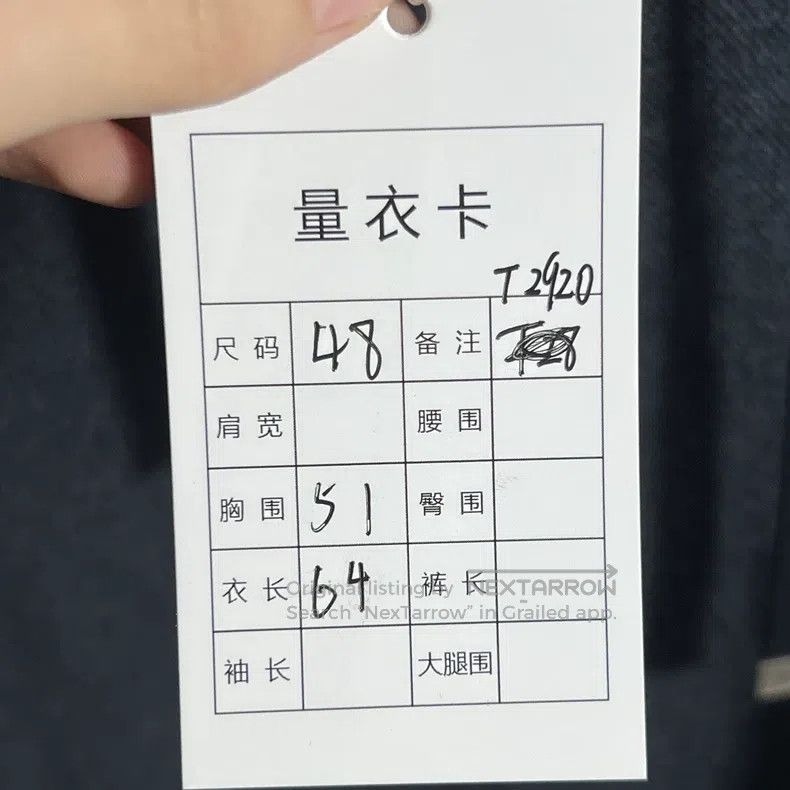 量衣卡
T2920
尺码 48 备注
肩宽 腰围
胸围 51 臀围
衣长 64 裤长
袖长 大腿围
Original listing by NEXTARROW
Search "NexTarrow" in Grailed app.